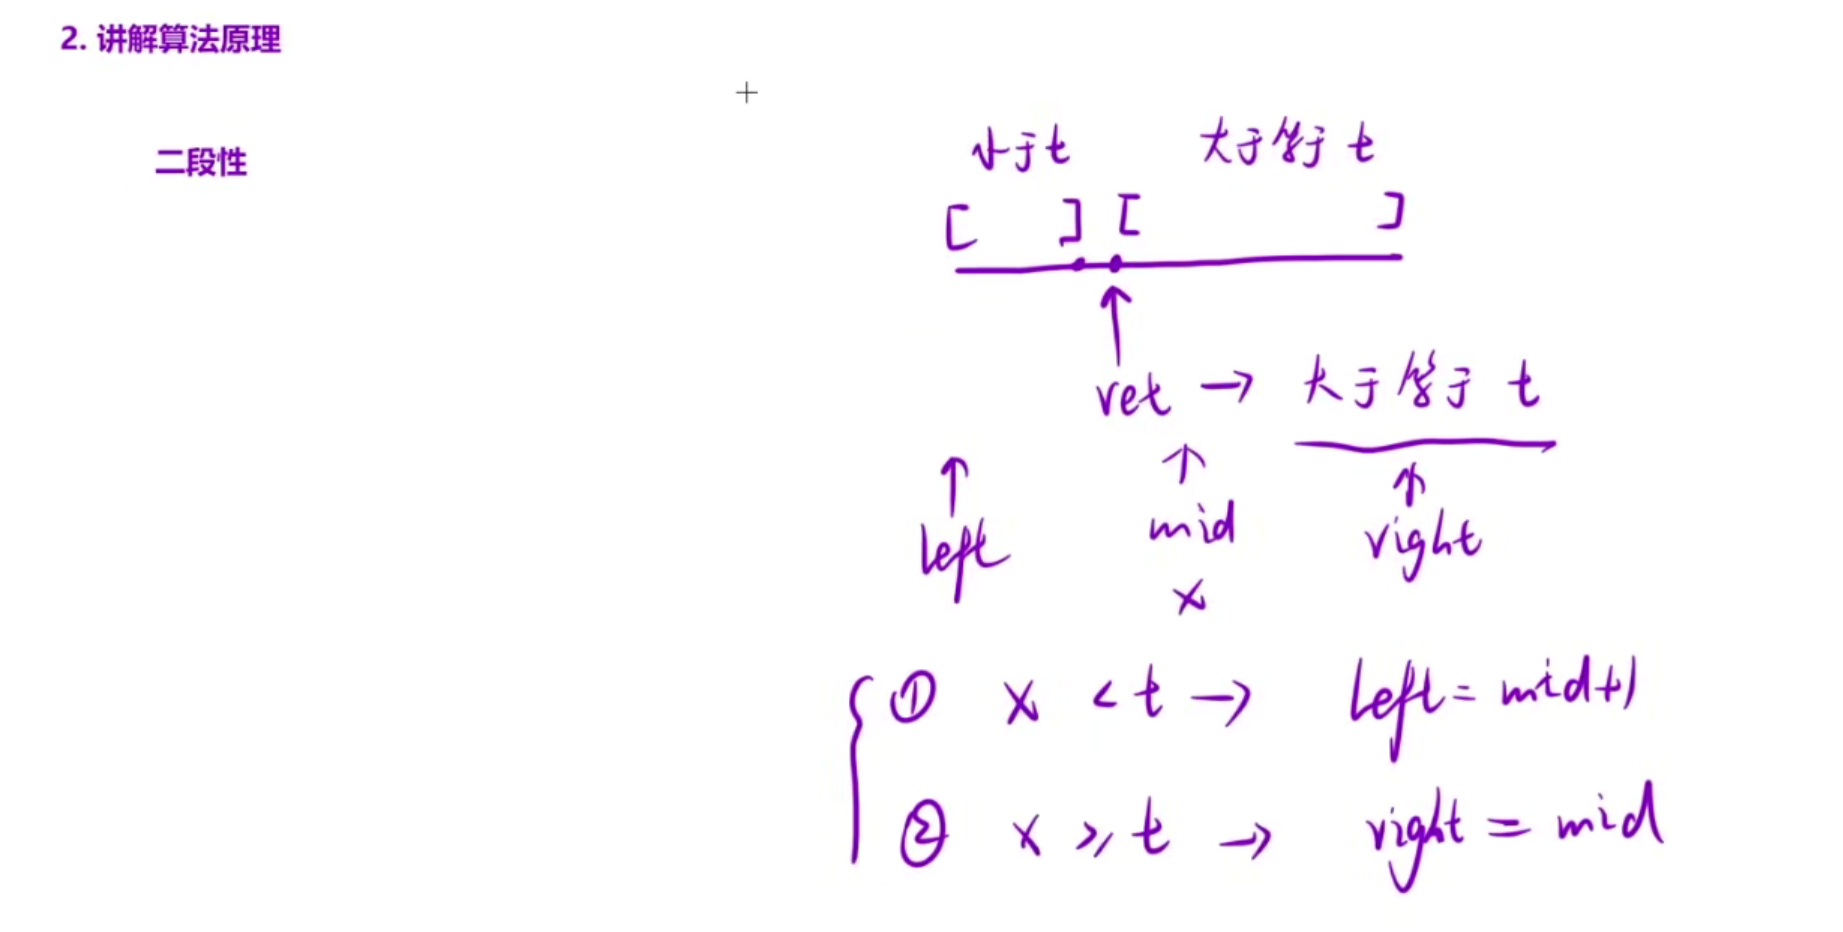 2. 讲解算法原理
二段性
小于t 大于等于 t
[ ] [ ]
ret → 大于等于 t
left mid right
x
① x < t → left = mid+1
② x ≥ t → right = mid